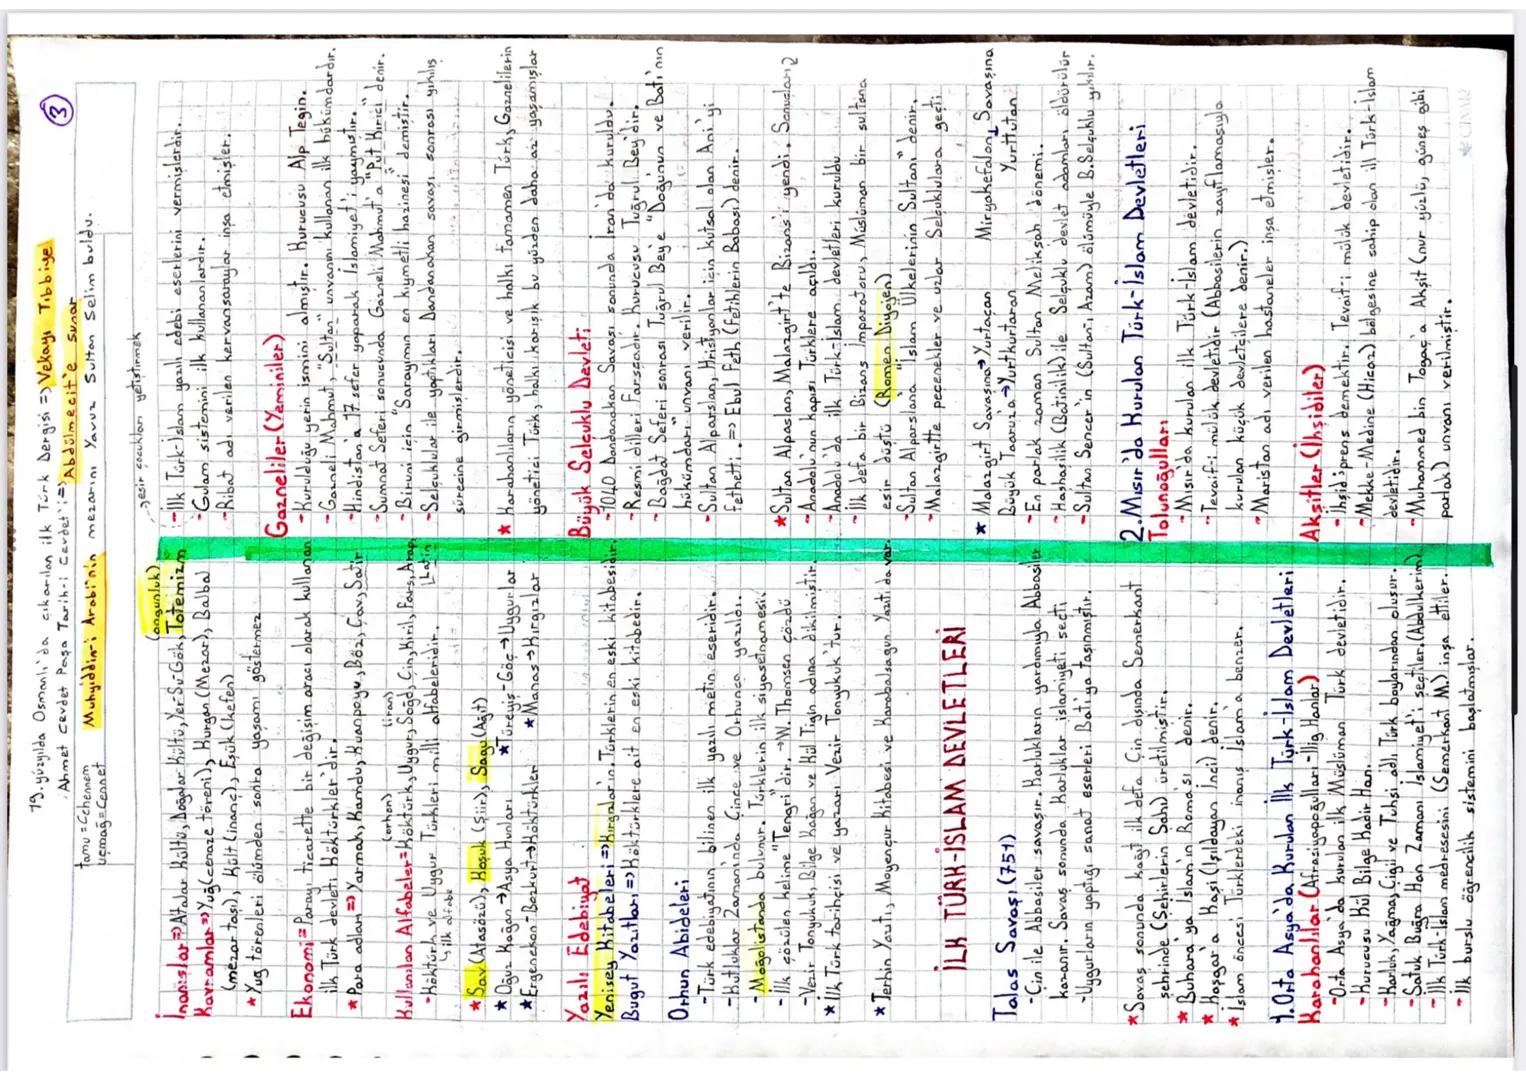 ③
19. yüzyılda Osmanlı'da çıkarılan ilk Türk Dergisi => Vekayi Tıbbiye
Ahmet Cevdet Paşa Tarih-i Cevdet'i => Abdülmecit'e sunar
Muhyiddin-i Arabi'nin mezarını Yavuz Sultan Selim buldu.
tamu = Cehennem
uçmağ = Cennet
(ongunluk)
İnanışlar => Atalar Kültü, Doğalar Kültü, Yer-Su Gök, Totemizm
Kavramlar => Yuğ (cenaze töreni), Kurgan (Mezar), Balbal
(mezar taşı), Kült (inanç), Eşük (kefen)
* Yuğ törenleri ölümden sonra yaşamı göstermez
Ekonomi = Parayı ticarette bir değişim aracı olarak kullanan
ilk Türk devleti Köktürkler'dir.
* Para adları => Yarmak, Kamdu, Kuanpoyu, Böz, Çav, Satır
(orhon) (iran)
Kullanılan Alfabeler = Köktürk, Uygur, Soğd, Çin, Kiril, Fars, Arap,
Latin
- Köktürk ve Uygur Türkleri milli alfabeleridir.
↳ ilk alfabe
* Sav (Atasözü), Koşuk (Şiir), Sagu (Ağıt)
* Oğuz Kağan → Asya Hunları * Türeyiş - Göç → Uygurlar
* Ergenekon - Bozkurt → Köktürkler * Manas → Kırgızlar
Yazılı Edebiyat
Yenisey Kitabeleri => Kırgızlar'ın. Türklerin en eski kitabesidir.
Bugut Yazıtları => Köktürklere ait en eski kitabedir.
Orhun Abideleri
- Türk edebiyatının bilinen ilk yazılı metin eseridir.
- Kutluklar Zamanında Çince ve Orhunca yazıldı.
- Moğolistanda bulunur. Türklerin ilk siyasetnamesi.
- İlk çözülen kelime "Tengri"dir. → W. Thomsen çözdü
- Vezir Tonyukuk, Bilge Kağan ve Kül Tigin adına dikilmiştir.
* İlk Türk tarihçisi ve yazarı Vezir Tonyukuk'tur.
* Terhin Yazıtı, Moyençur Kitabesi ve Karabalsagun Yazıtı da var.
İLK TÜRK-İSLAM DEVLETLERİ
Talas Savaşı (751)
- Çin ile Abbasiler savaşır. Karlukların yardımıyla Abbasiler
kazanır. Savaş sonunda Karluklar islamiyeti seçti
- Uygurların yaptığı sanat eserleri Batı'ya taşınmıştır.
* Savaş sonunda kağıt ilk defa Çin dışında Semerkant
şehrinde (Şehirlerin Şahı) üretilmiştir.
* Buhara'ya "İslam'ın Roma'sı" denir.
* Kaşgar'a Kaşi (Işıldayan İnci) denir.
* İslam öncesi Türklerdeki inanış İslam'a benzer.
1. Orta Asya'da Kurulan İlk Türk-İslam Devletleri
Karahanlılar (Afrasiyapoğulları - İlig Hanlar)
- Orta Asya'da kurulan ilk Müslüman Türk devletidir.
- Kurucusu Kül Bilge Kadir Han.
- Karluk, Yağma, Çigil ve Tuhsi adlı Türk boylarından oluşur.
- Satuk Buğra Han Zamanı İslamiyet'i seçtiler. (Abdulkerim)
- İlk Türk-İslam medresesini (Semerkant M.) inşa ettiler.
- İlk burslu öğrencilik sistemini başlatmışlar.
→ esir çocukları yetiştirmek
- İlk Türk-İslam yazılı edebi eserlerini vermişlerdir.
- Gulam sistemini ilk kullananlardır.
- Ribat adı verilen kervansaraylar inşa etmişler.
Gazneliler (Yeminiler)
- Kurulduğu yerin ismini almıştır. Kurucusu Alp Tegin.
- Gazneli Mahmut, "Sultan" unvanını kullanan ilk hükümdardır.
- Hindistan'a 17 sefer yaparak İslamiyet'i yaymıştır.
- Sumnat Seferi sonucunda Gazneli Mahmut'a "Put Kırıcı" denir.
- Biruni için "Sarayımın en kıymetli hazinesi" demiştir.
- Selçuklular ile yaptıkları Dandanakan savaşı sonrası yıkılış
sürecine girmişlerdir.
* Karahanlıların yöneticisi ve halkı tamamen Türk, Gaznelilerin
yönetici Türk, halkı karışık bu yüzden daha az yaşamışlar
Büyük Selçuklu Devleti
- 1040 Dandanakan Savaşı sonunda İran'da kuruldu.
- Resmi dilleri Farsçadır. Kurucusu Tuğrul Bey'dir.
- Bağdat Seferi sonrası Tuğrul Bey'e "Doğunun ve Batı'nın
hükümdarı" unvanı verilir.
- Sultan Alparslan, Hristiyanlar için kutsal olan Ani'yi
fethetti. => Ebul Feth (Fetihlerin Babası) denir.
* Sultan Alpaslan, Malazgirt'te Bizans'ı yendi. Sonuçları?
- Anadolu'nun kapısı Türklere açıldı.
- Anadolu'da ilk Türk-İslam devletleri kuruldu
- İlk defa bir Bizans imparatoru, Müslüman bir sultana
esir düştü (Romen Diyojen)
- Sultan Alparslana "İslam Ülkelerinin Sultanı" denir.
- Malazgirtte peçenekler ve uzlar Selçuklulara geçti
* Malazgirt Savaşına → Yurtaçan Miryokefalon Savaşına
Büyük Taaruz'a → Yurtkurtaran Yurttutan
- En parlak zaman Sultan Melikşah dönemi.
- Haşhaşilik (Batınilik) ile Selçuklu devlet adamları öldürülür
- Sultan Sencer'in (Sultan-ı Azam) ölümüyle B. Selçuklu yıkılır.
2. Mısır'da Kurulan Türk-İslam Devletleri
Tolunoğulları
- Mısır'da kurulan ilk Türk-İslam devletidir.
- Tevaif-i mülük devletidir (Abbasilerin zayıflamasıyla
kurulan küçük devletçilere denir.)
- Maristan adı verilen hastaneler inşa etmişler.
Akşitler (İhşidiler)
- İhşid prens demektir. Tevaif-i mülük devletidir.
- Mekke-Medine (Hicaz) bölgesine sahip olan ilk Türk-İslam
devletidir.
- Muhammed bin Togaç'a Akşit (nur yüzlü, güneş gibi
parlak) unvanı verilmiştir.